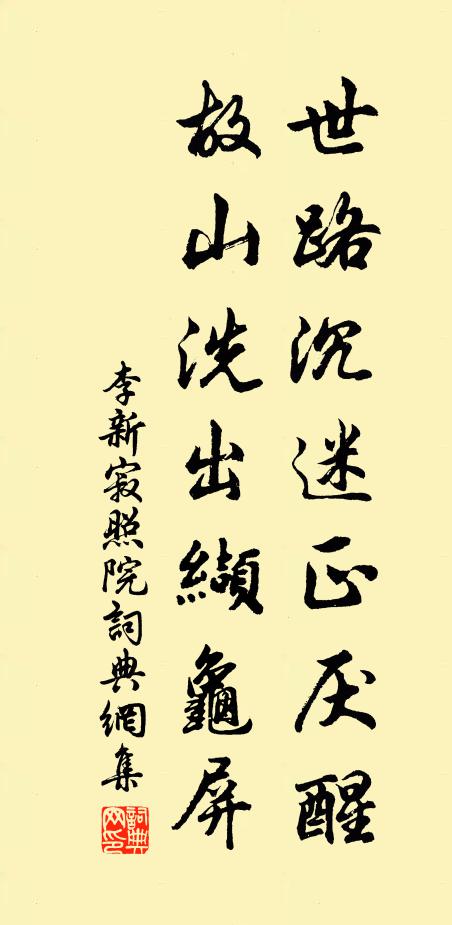 世路沉迷正厌醒
故山洗出纈龜屏
李新寂照院詞典網集
詞典网印